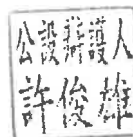 公設辯護人
許俊雄